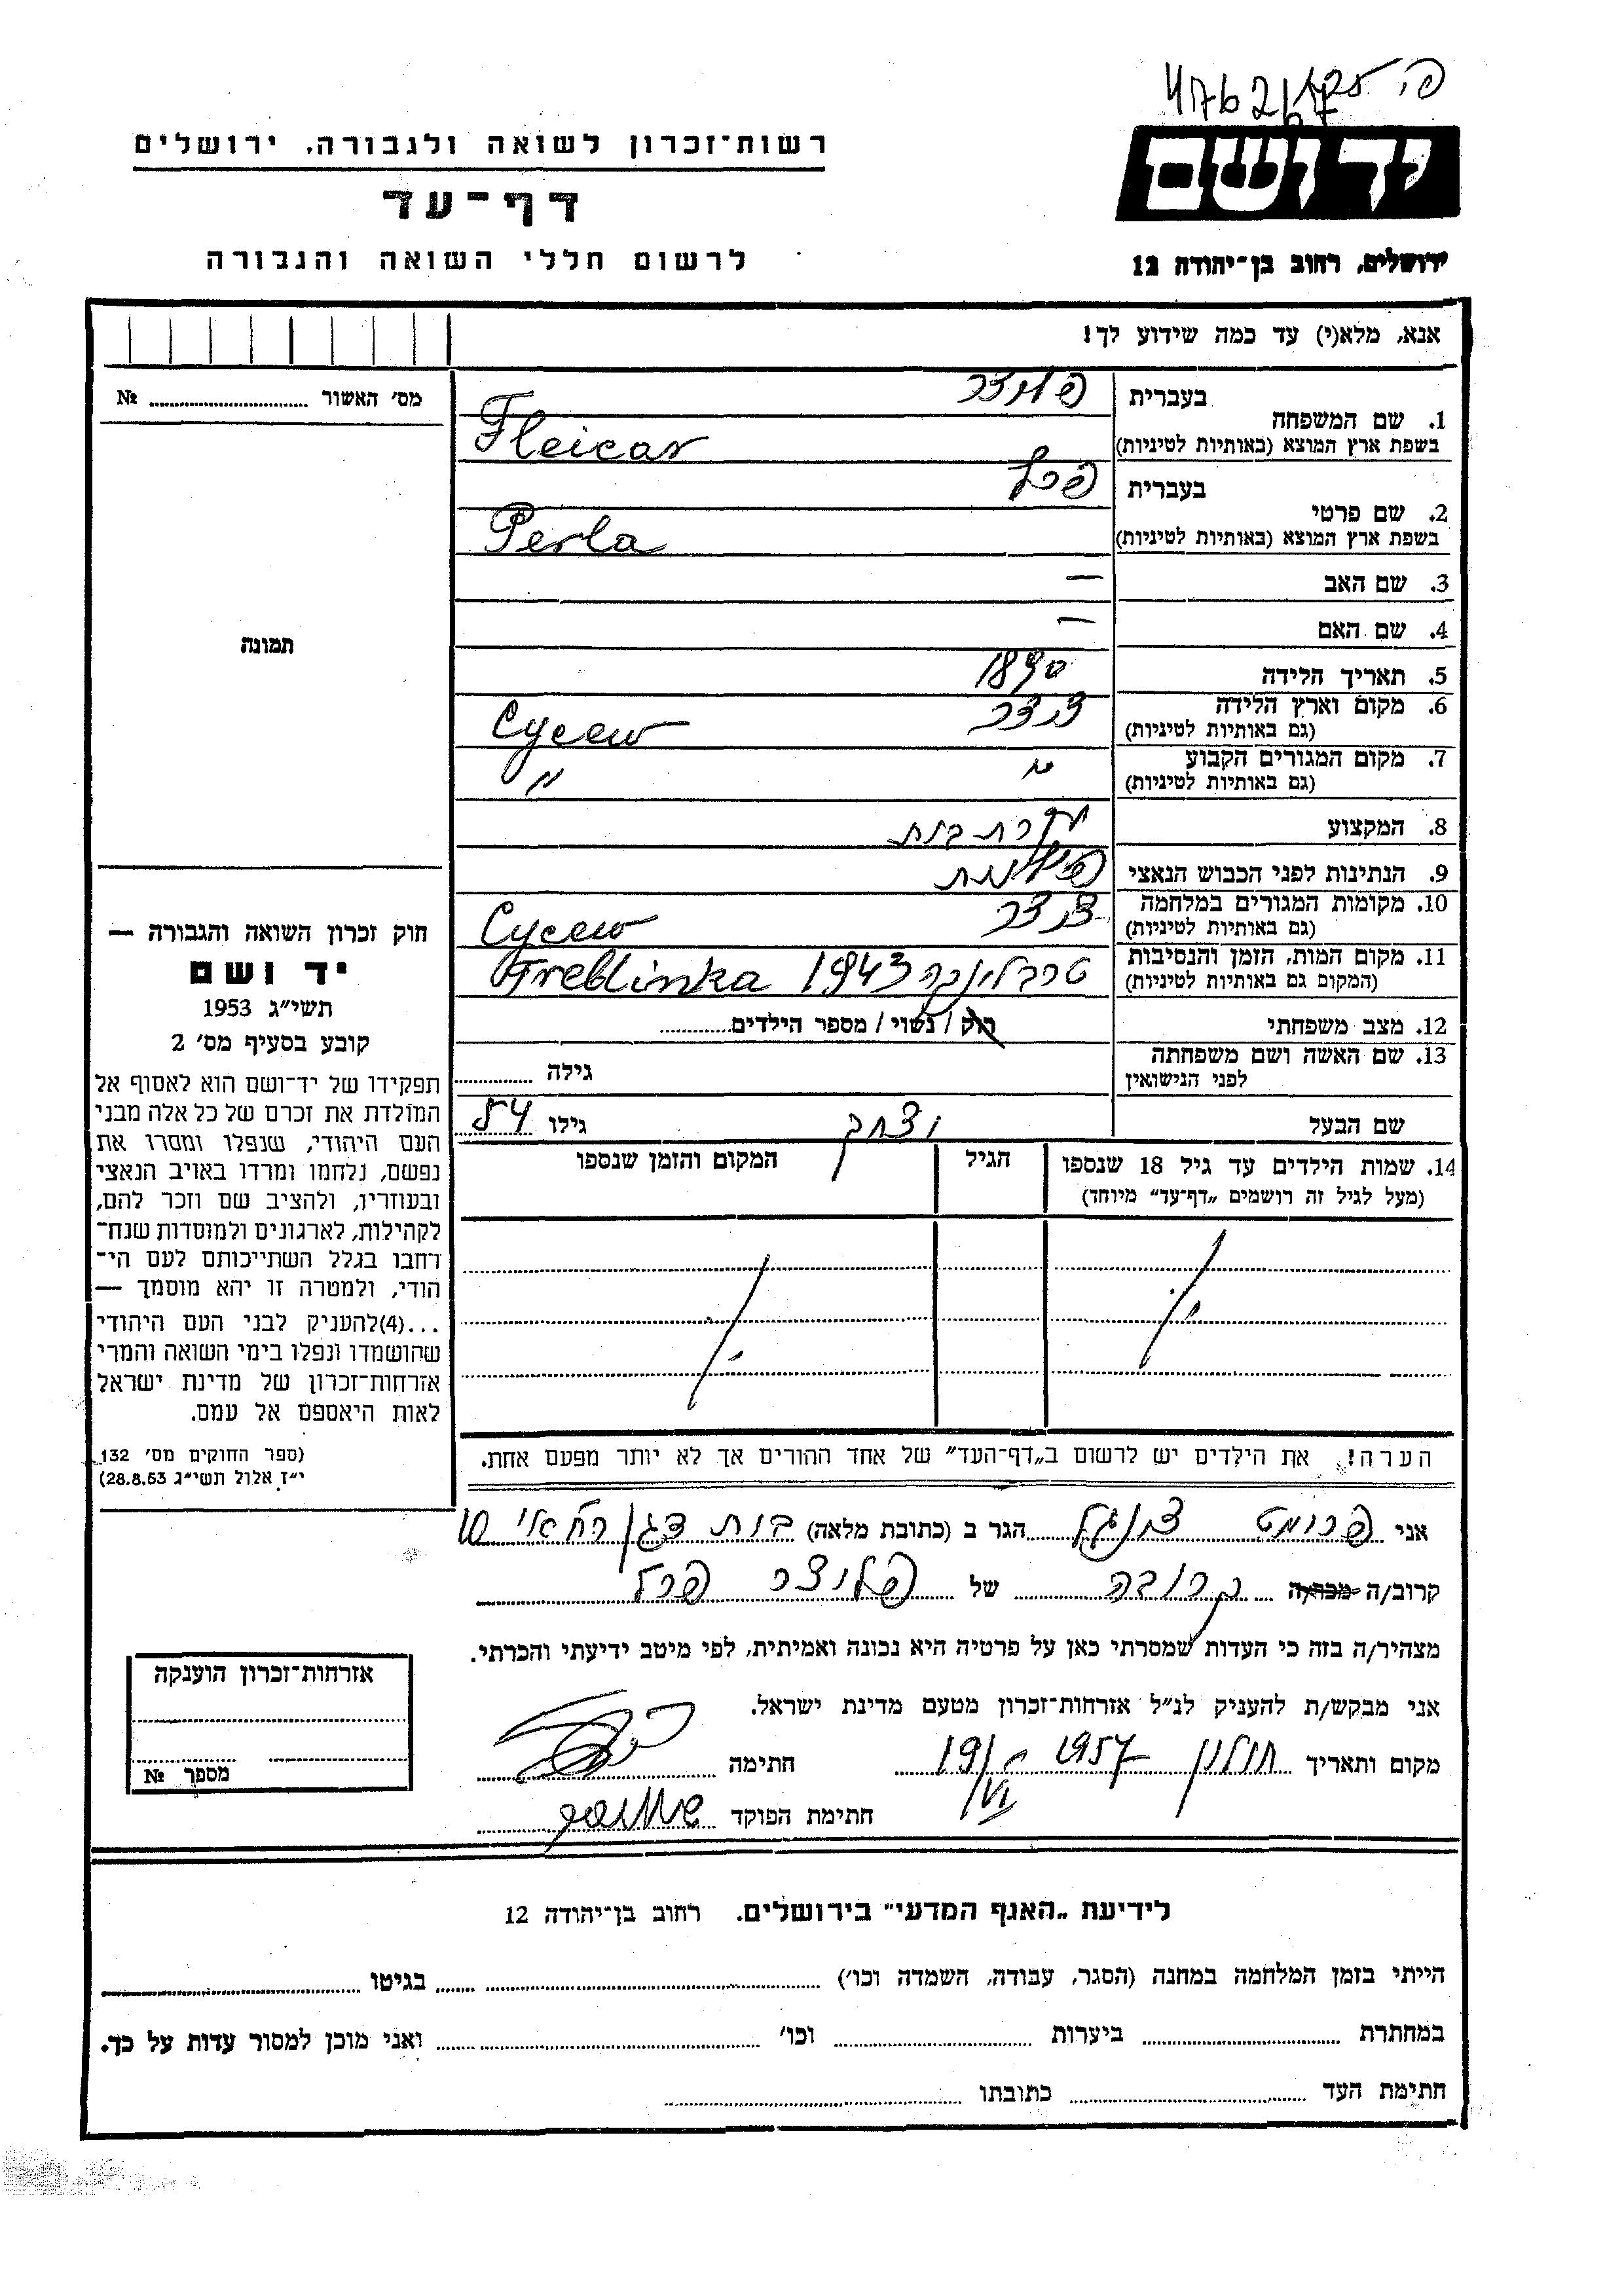 פ. 125
476267
ידושם
ירושלים, רחוב בן־יהודה 12
רשות־זכרון לשואה ולגבורה, ירושלים
דף־עד
לרשום חללי השואה והגבורה
אנא, מלא(י) עד כמה שידוע לך!
1. שם המשפחה
בעברית
בשפת ארץ המוצא (באותיות לטיניות)
Fleicar
2. שם פרטי
בעברית פרל
בשפת ארץ המוצא (באותיות לטיניות)
Perla
3. שם האב —
4. שם האם —
5. תאריך הלידה 1890
6. מקום וארץ הלידה
(גם באותיות לטיניות) Cycew
7. מקום המגורים הקבוע
(גם באותיות לטיניות) " "
8. המקצוע עקרת בית
9. הנתינות לפני הכבוש הנאצי פולנית
10. מקומות המגורים במלחמה
(גם באותיות לטיניות) Cycew
11. מקום המות, הזמן והנסיבות
(המקום גם באותיות לטיניות)
טרבלינקה 1943 Treblinka
12. מצב משפחתי רוק / נשוי / מספר הילדים
13. שם האשה ושם משפחתה
לפני הנישואין גילה
שם הבעל יצחק גילו 54
14. שמות הילדים עד גיל 18 שנספו הגיל המקום והזמן שנספו
(מעל לגיל זה רושמים „דף־עד" מיוחד)
הערה! את הילדים יש לרשום ב„דף־העד" של אחד ההורים אך לא יותר מפעם אחת.
מס׳ האשור №
תמונה
חוק זכרון השואה והגבורה —
יד ושם
תשי"ג 1953
קובע בסעיף מס׳ 2
תפקידו של יד־ושם הוא לאסוף אל
המולדת את זכרם של כל אלה מבני
העם היהודי, שנפלו ומסרו את
נפשם, נלחמו ומרדו באויב הנאצי
ובעוזריו, ולהציב שם וזכר להם,
לקהילות, לארגונים ולמוסדות שנח־
רבו בגלל השתייכותם לעם הי־
הודי, ולמטרה זו יהא מוסמך —
...(4)להעניק לבני העם היהודי
שהושמדו ונפלו בימי השואה והמרי
אזרחות־זכרון של מדינת ישראל
לאות היאספם אל עמם.
(ספר החוקים מס׳ 132
י"ז אלול תשי"ג 28.8.53)
אני פרומט הגר ב (כתובת מלאה) בית דגן
קרוב/ה מכר/ה קרובה של פליצר פרל
מצהיר/ה בזה כי העדות שמסרתי כאן על פרטיה היא נכונה ואמיתית, לפי מיטב ידיעתי והכרתי.
אני מבקש/ת להעניק לנ"ל אזרחות־זכרון מטעם מדינת ישראל.
מקום ותאריך חולון 1957 חתימה
חתימת הפוקד
אזרחות־זכרון הוענקה
מספר №
לידיעת „האגף המדעי" בירושלים. רחוב בן־יהודה 12
הייתי בזמן המלחמה במחנה (הסגר, עבודה, השמדה וכו׳) בגיטו
במחתרת ביערות וכו׳ ואני מוכן למסור עדות על כך.
חתימת העד כתובתו